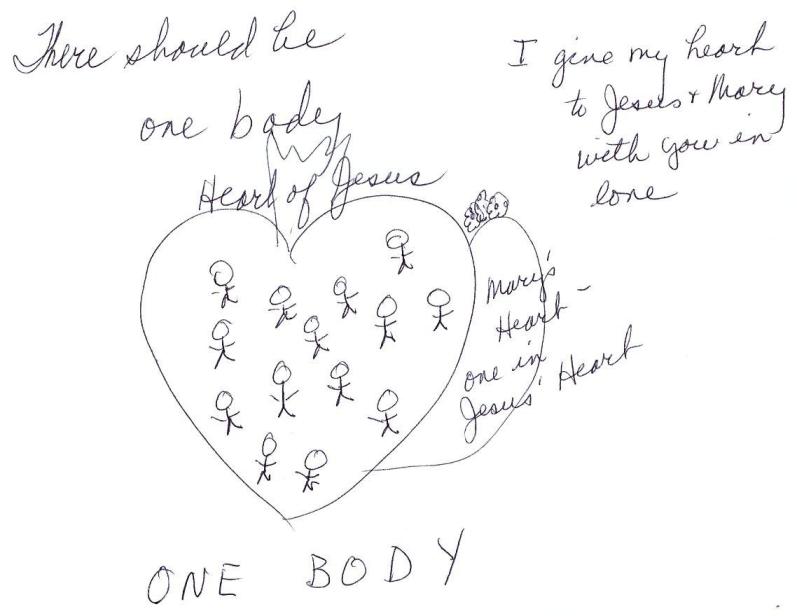 There should be
one body
Heart of Jesus
I give my heart
to Jesus + Mary
with you in
love
Mary's
Heart -
one in
Jesus' Heart
ONE BODY